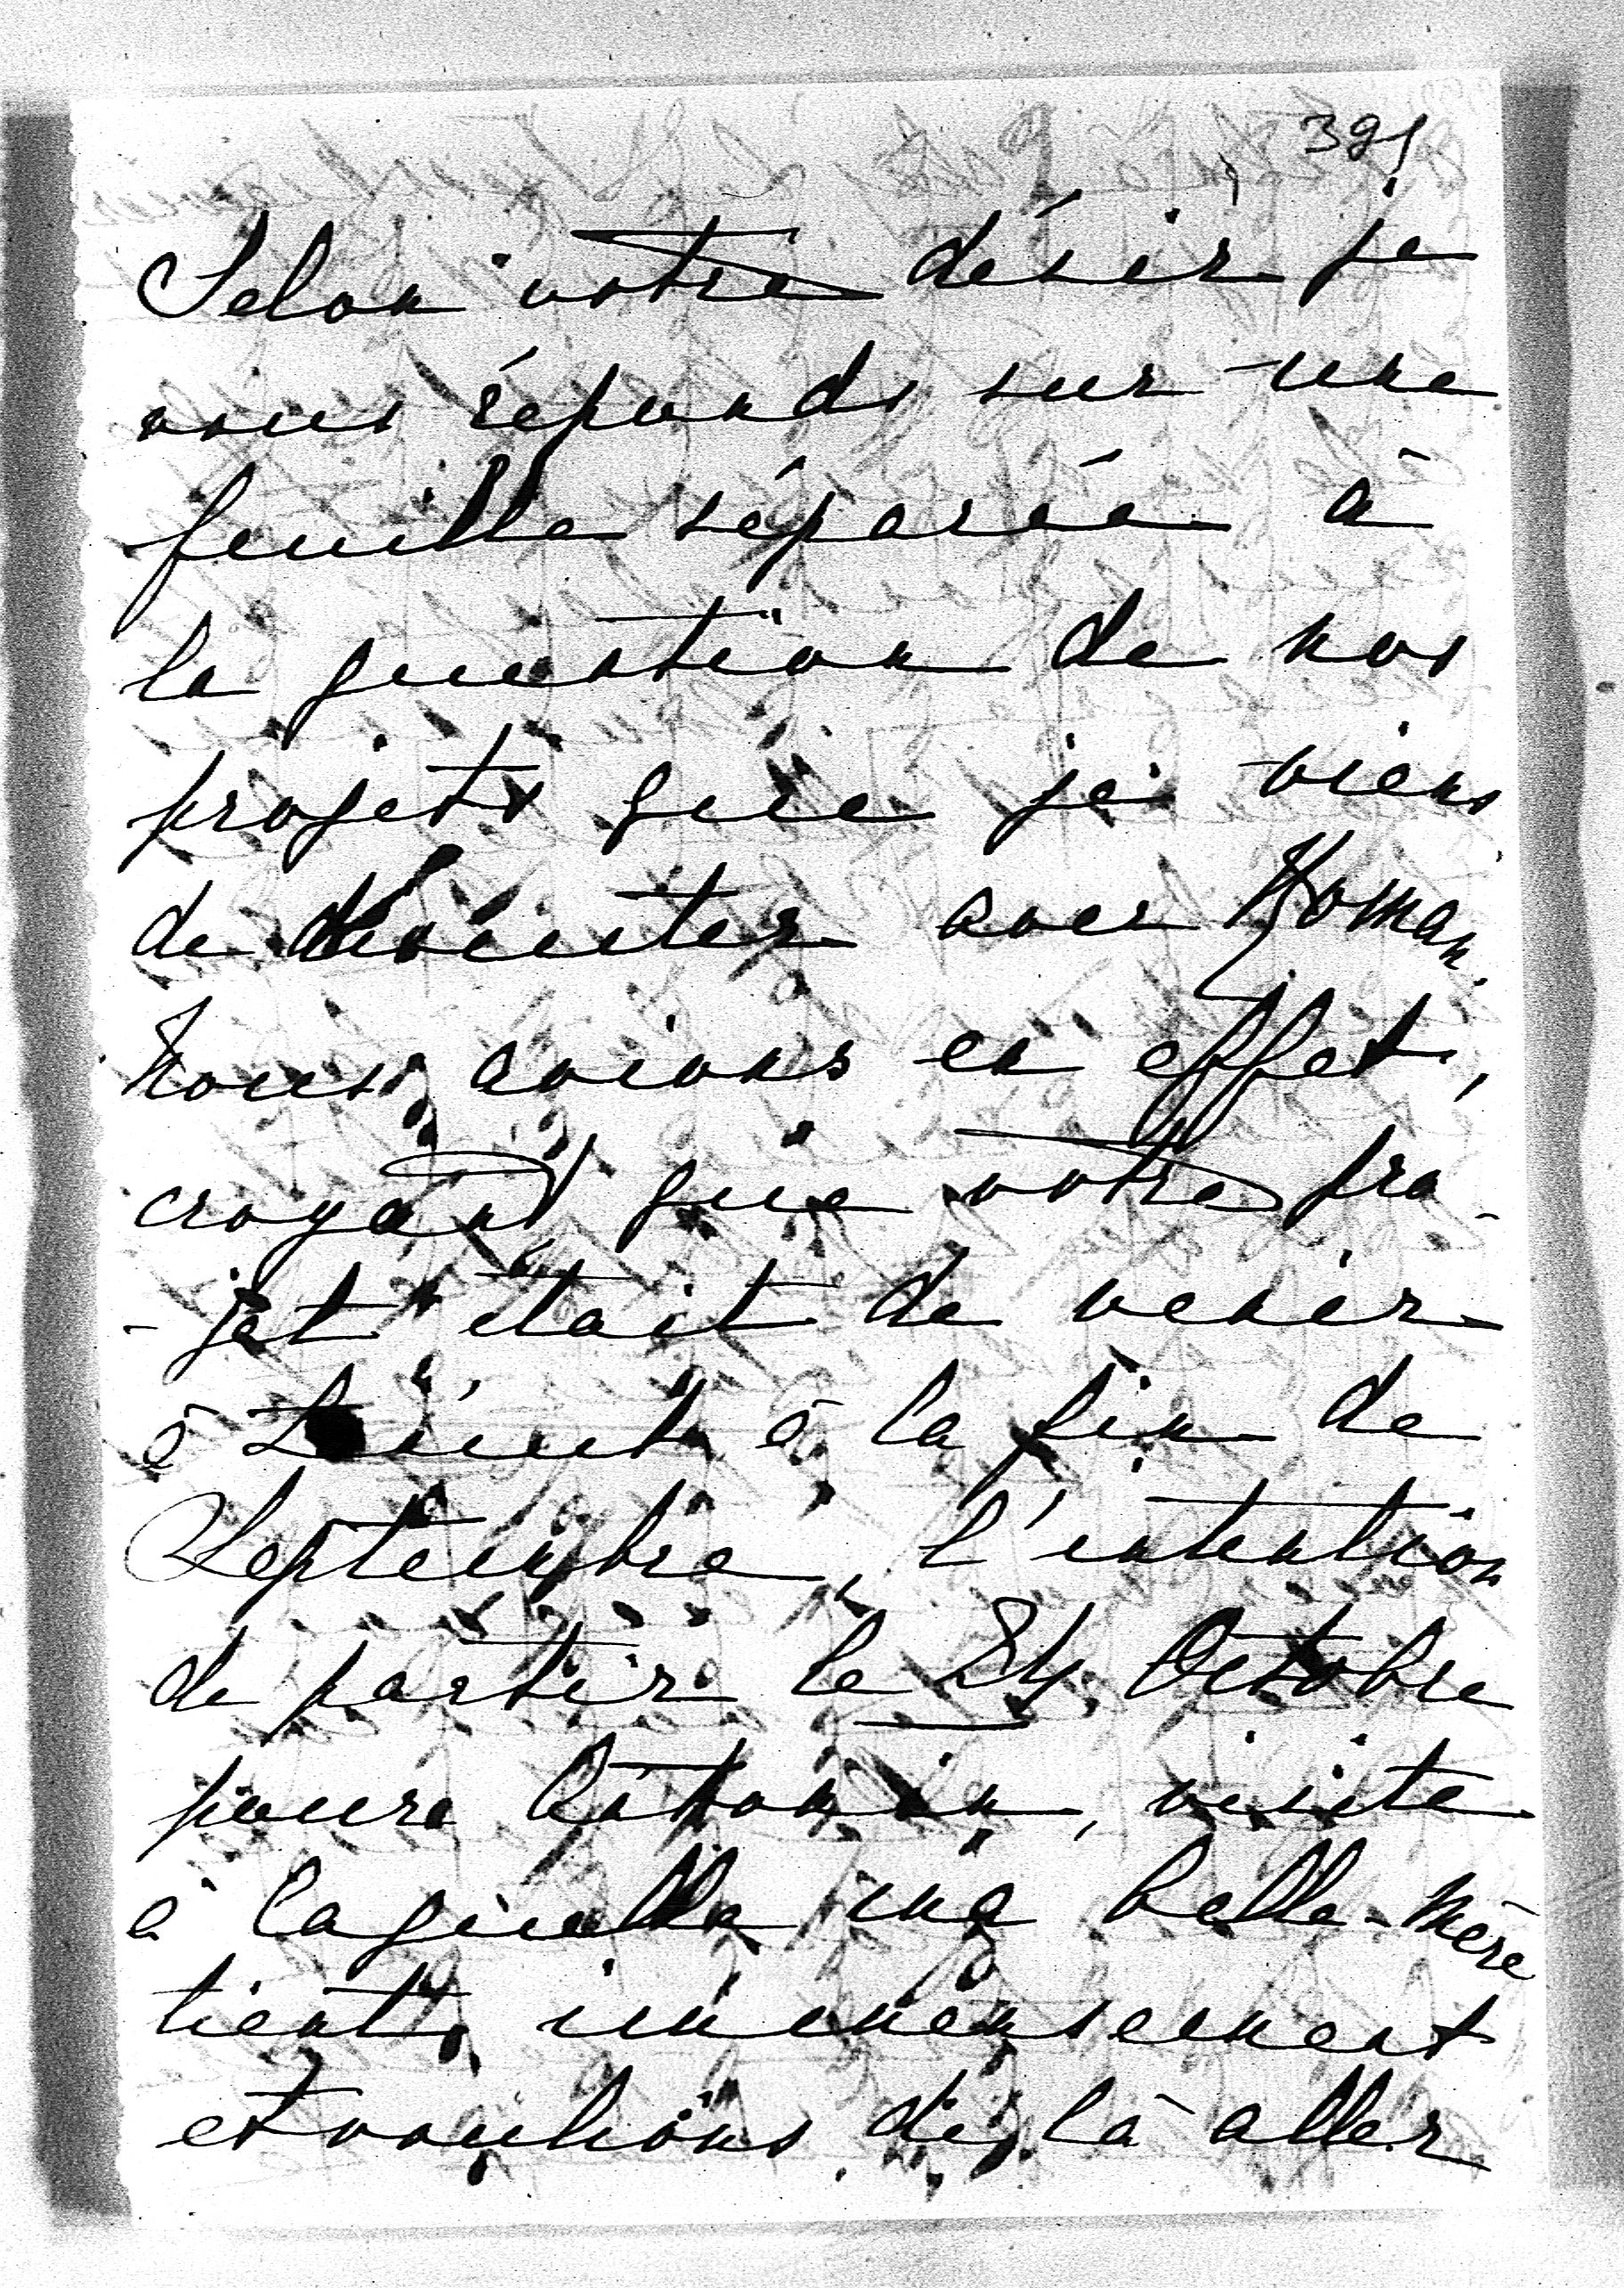 391
Selon votre désir je
vous réponds sur une
feuille séparée à
la question de nos
projets que je viens
de discuter avec Roman.
Nous avions en effet,
croyant que votre pro-
-jet était de venir
à à la fin de
Septembre, l'intention
de partir le 24 Octobre
pour Antonin, visite
à laquelle ma belle-mère
tient immensement
et voulions de là aller